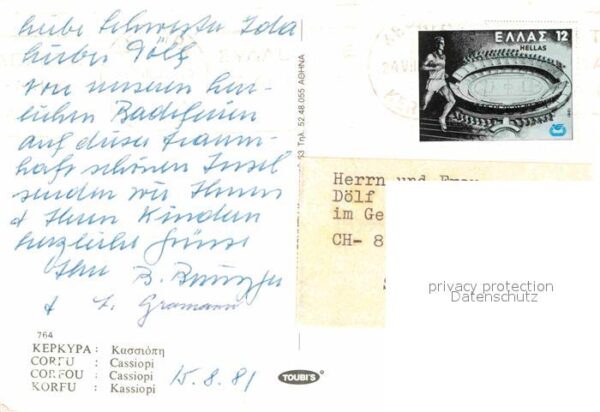 liebe Schwester Ida
lieber Dölf
von unseren herr-
lichen Badeferien
auf dieser traum-
haft schönen Insel
senden wir Ihnen
& Ihren Kindern
herzliche Grüsse
Ihre B.
&
764
ΚΕΡΚΥΡΑ : Κασσιόπη
CORFU : Cassiopi
CORFOU : Cassiopi
KORFU : Kassiopi
15.8.81
TOUBI'S
Τηλ. 52.48.055 ΑΘΗΝΑ
ΕΛΛΑΣ 12
HELLAS
Herrn und Frau
Dölf
im Ge
CH- 8
privacy protection
Datenschutz